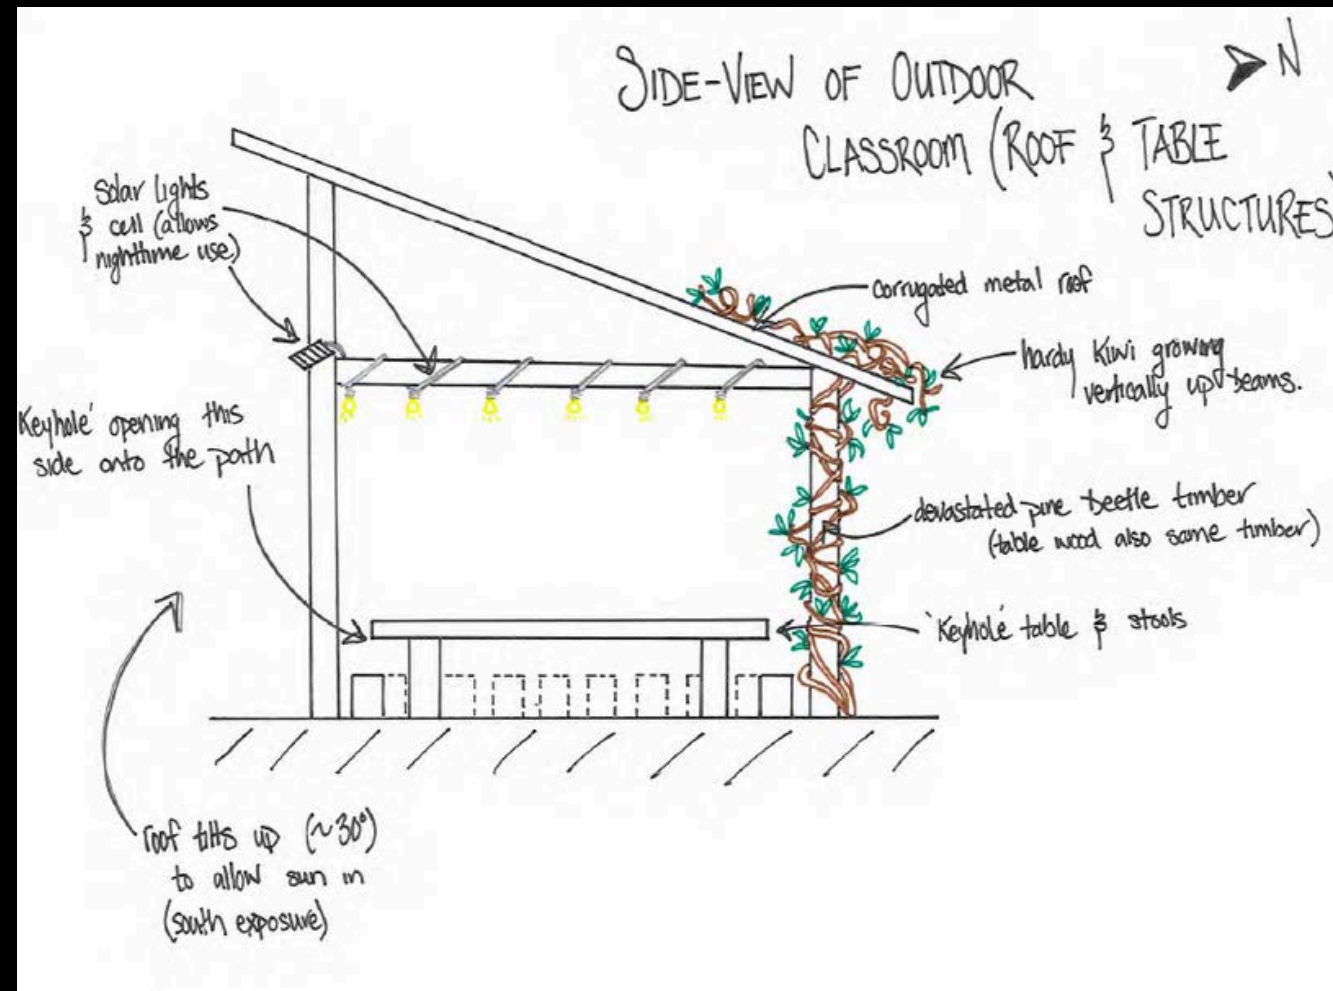 SIDE-VIEW OF OUTDOOR
CLASSROOM (ROOF & TABLE
STRUCTURES)
N
Solar lights
& cell (allows
nighttime use)
corrugated metal roof
hardy kiwi growing
vertically up beams.
'Keyhole' opening this
side onto the path
devastated pine beetle timber
(table wood also same timber)
'Keyhole' table & stools
roof tilts up (~30°)
to allow sun in
(south exposure)